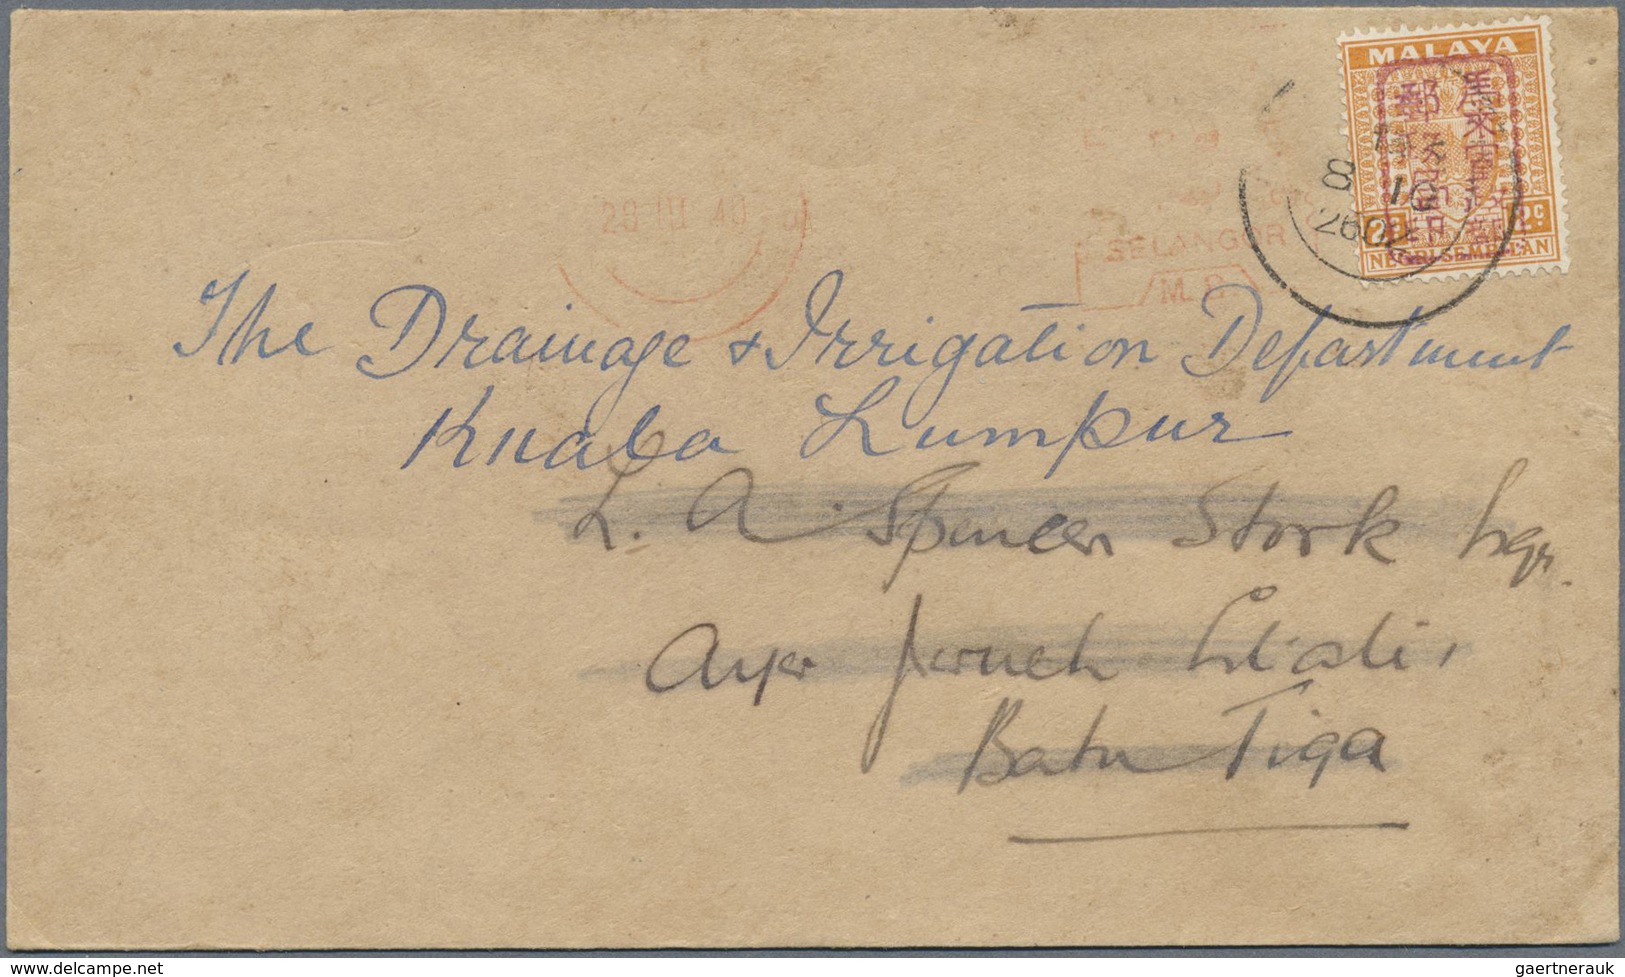 MALAYA
馬來軍政部
郵務局印
2c
NEGRI SEMBILAN
8 10
2602
20 III 40
SELANGOR
The Drainage & Irrigation Department
Kuala Lumpur
L. A. Spencer Stork Esqr.
Ayer
Batu Tiga
www.delcampe.net
gaertnerauk